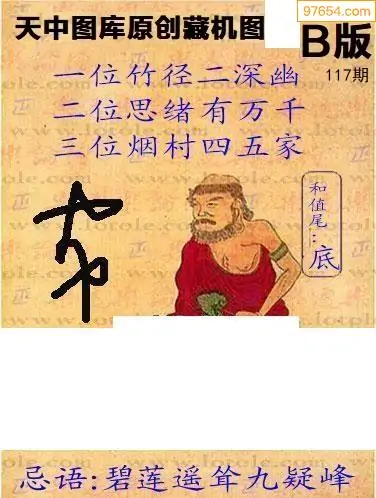 97654.com
天中图库原创藏机图
B版
117期
一位竹径二深幽
二位思绪有万千
三位烟村四五家
和值尾:底
忌语:碧莲遥耸九疑峰